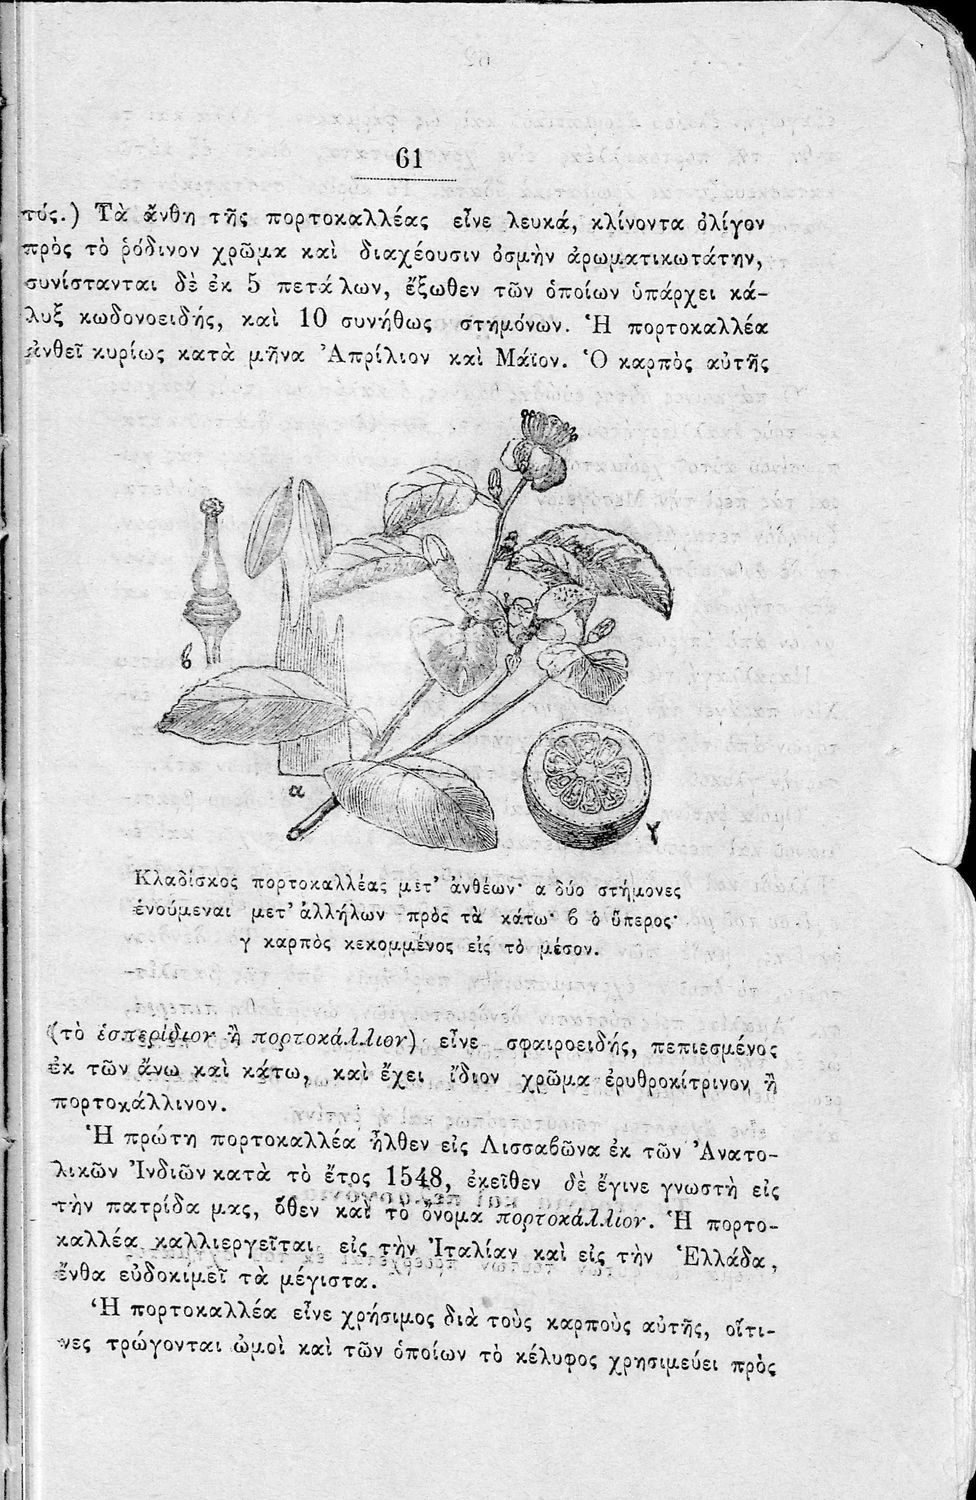 61
τός.) Τὰ ἄνθη τῆς πορτοκαλλέας εἶνε λευκά, κλίνοντα ὀλίγον
πρὸς τὸ ῥόδινον χρῶμα καὶ διαχέουσιν ὀσμὴν ἀρωματικωτάτην,
συνίστανται δὲ ἐκ 5 πετάλων, ἔξωθεν τῶν ὁποίων ὑπάρχει κά-
λυξ κωδονοειδής, καὶ 10 συνήθως στημόνων. Ἡ πορτοκαλλέα
ἀνθεῖ κυρίως κατὰ μῆνα Ἀπρίλιον καὶ Μάϊον. Ὁ καρπὸς αὐτῆς
β
α
γ
Κλαδίσκος πορτοκαλλέας μετ' ἀνθέων· α δύο στήμονες
ἑνούμεναι μετ' ἀλλήλων πρὸς τὰ κάτω· β ὁ ὕπερος·
γ καρπὸς κεκομμένος εἰς τὸ μέσον.
(τὸ ἑσπερίδιον ἢ πορτοκάλλιον) εἶνε σφαιροειδής, πεπιεσμένος
ἐκ τῶν ἄνω καὶ κάτω, καὶ ἔχει ἴδιον χρῶμα ἐρυθροκίτρινον ἢ
πορτοκάλλινον.
Ἡ πρώτη πορτοκαλλέα ἦλθεν εἰς Λισσαβῶνα ἐκ τῶν Ἀνατο-
λικῶν Ἰνδιῶν κατὰ τὸ ἔτος 1548, ἐκεῖθεν δὲ ἔγινε γνωστὴ εἰς
τὴν πατρίδα μας, ὅθεν καὶ τὸ ὄνομα πορτοκάλλιον. Ἡ πορτο-
καλλέα καλλιεργεῖται εἰς τὴν Ἰταλίαν καὶ εἰς τὴν Ἑλλάδα,
ἔνθα εὐδοκιμεῖ τὰ μέγιστα.
Ἡ πορτοκαλλέα εἶνε χρήσιμος διὰ τοὺς καρποὺς αὐτῆς, οἵτι-
νες τρώγονται ὠμοὶ καὶ τῶν ὁποίων τὸ κέλυφος χρησιμεύει πρὸς